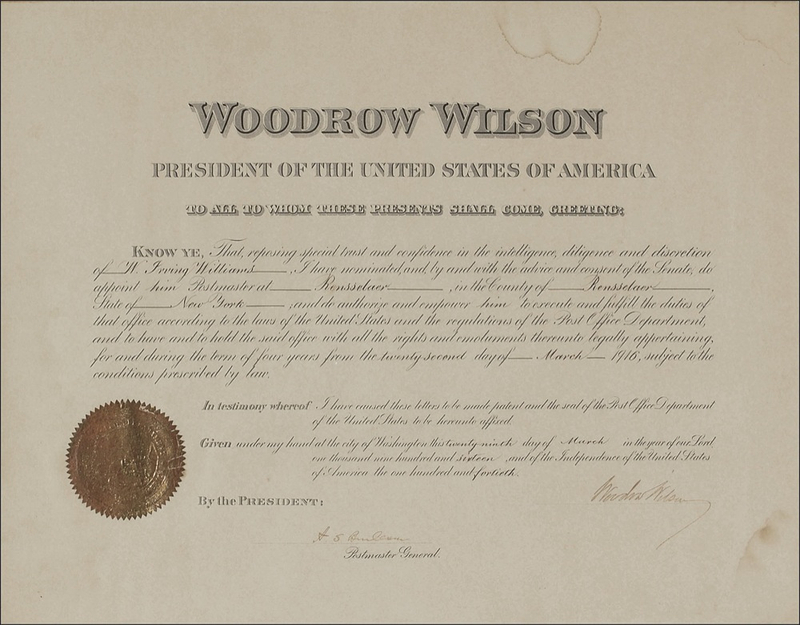 WOODROW WILSON
PRESIDENT OF THE UNITED STATES OF AMERICA
TO ALL TO WHOM THESE PRESENTS SHALL COME, GREETING:
KNOW YE, That, reposing special trust and confidence in the intelligence, diligence and discretion
of W. Irving Williams, I have nominated, and, by and with the advice and consent of the Senate, do
appoint him Postmaster at Rensselaer, in the County of Rensselaer,
State of New York, and do authorize and empower him to execute and fulfill the duties of
that office according to the laws of the United States and the regulations of the Post Office Department,
and to have and to hold the said office with all the rights and emoluments thereunto legally appertaining,
for and during the term of four years from the twenty second day of March 1916, subject to the
conditions prescribed by law.
In testimony whereof I have caused these letters to be made patent and the seal of the Post Office Department
of the United States to be hereunto affixed.
Given under my hand at the city of Washington this twenty-ninth day of March in the year of our Lord
one thousand nine hundred and sixteen, and of the Independence of the United States
of America the one hundred and fortieth.
By the PRESIDENT:
Woodrow Wilson
A S Burleson
Postmaster General.